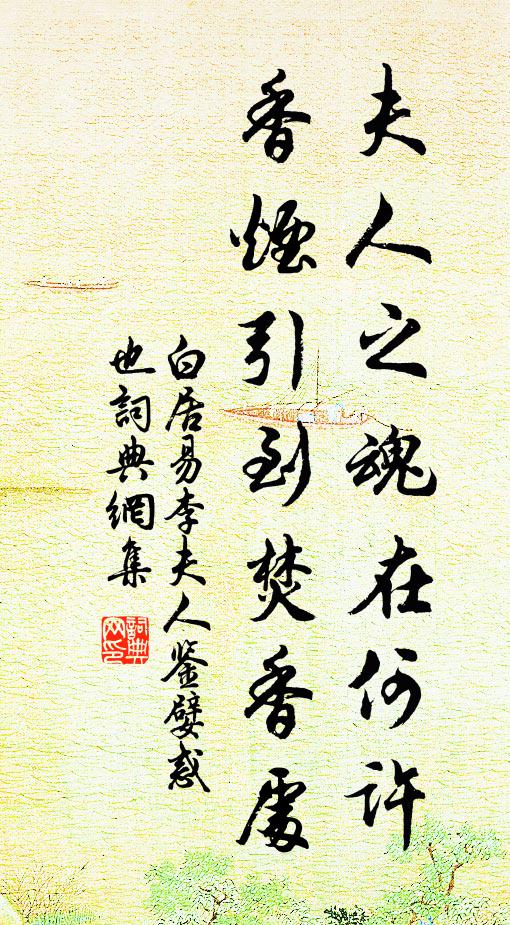 夫人之魂在何許
香煙引到焚香處
白居易李夫人鉴嬖惑
也詞典網集
詞典网印